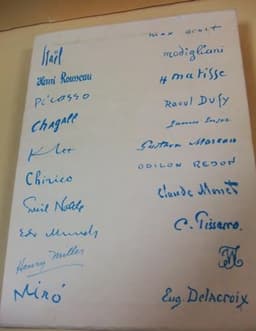 Staël
Henri Rousseau
Picasso
Chagall
Klee
Chirico
Emil Nolde
Edv Munch
Henry Miller
Miró
max ernst
modigliani
H matisse
Raoul Dufy
James Ensor
Gustave Moreau
ODILON REDON
Claude Monet
C. Pissarro.
Eug Delacroix